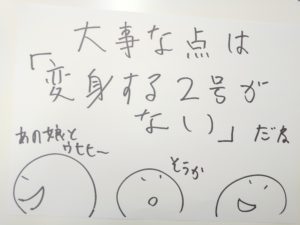 大事な点は
「変身する2号が
ない」だな
あの娘と
ウヒヒ〜
そうか